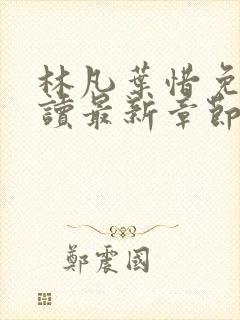 林凡葉惜免
讀最新章節
鄭震國